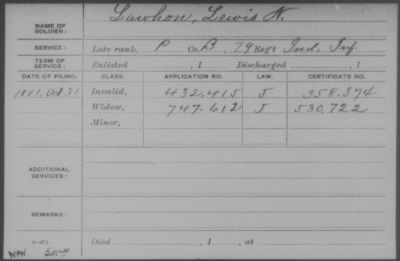 NAME OF SOLDIER: Lawhon, Lewis N.
SERVICE: Late rank, P Co. B, 79 Reg't Ind. Inf.
TERM OF SERVICE: Enlisted , 1 Discharged , 1
DATE OF FILING. CLASS. APPLICATION NO. LAW. CERTIFICATE NO.
1881, Oct 31 Invalid, 432.415 J 358.374
Widow, 747.612 J 530.722
Minor,
ADDITIONAL SERVICES:
REMARKS:
Died , 1 , at